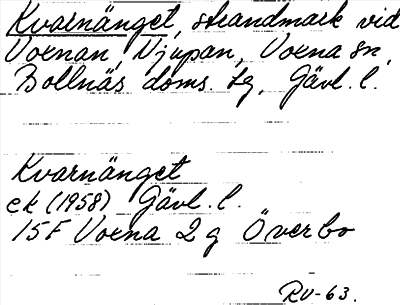 Kvarnänget, strandmark vid
Voxnan, Njupan, Voxna sn,
Bollnäs doms. tg, Gävl. l.
Kvarnänget
ek (1958) Gävl. l.
15F Voxna 2 g Överbo
RV-63.